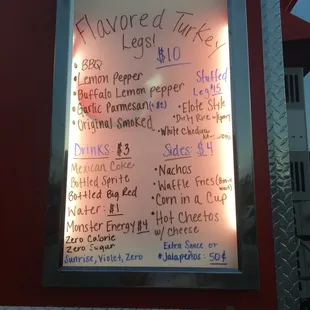 Flavored Turkey
Legs!
$10
• BBQ
• Lemon Pepper
• Buffalo Lemon pepper
• Garlic Parmesan (+$1)
• Original Smoked
Stuffed
Leg $15
• Elote Style
• Dirty Rice
• White Cheddar
Drinks: $3
Mexican Coke
Bottled Sprite
Bottled Big Red
Water: $1
Monster Energy $4
Zero Calorie
Zero Sugar
Sunrise, Violet, Zero
Sides: $4
• Nachos
• Waffle Fries
• Corn in a Cup
• Hot Cheetos
w/ cheese
Extra Sauce or
• Jalapeños: 50¢